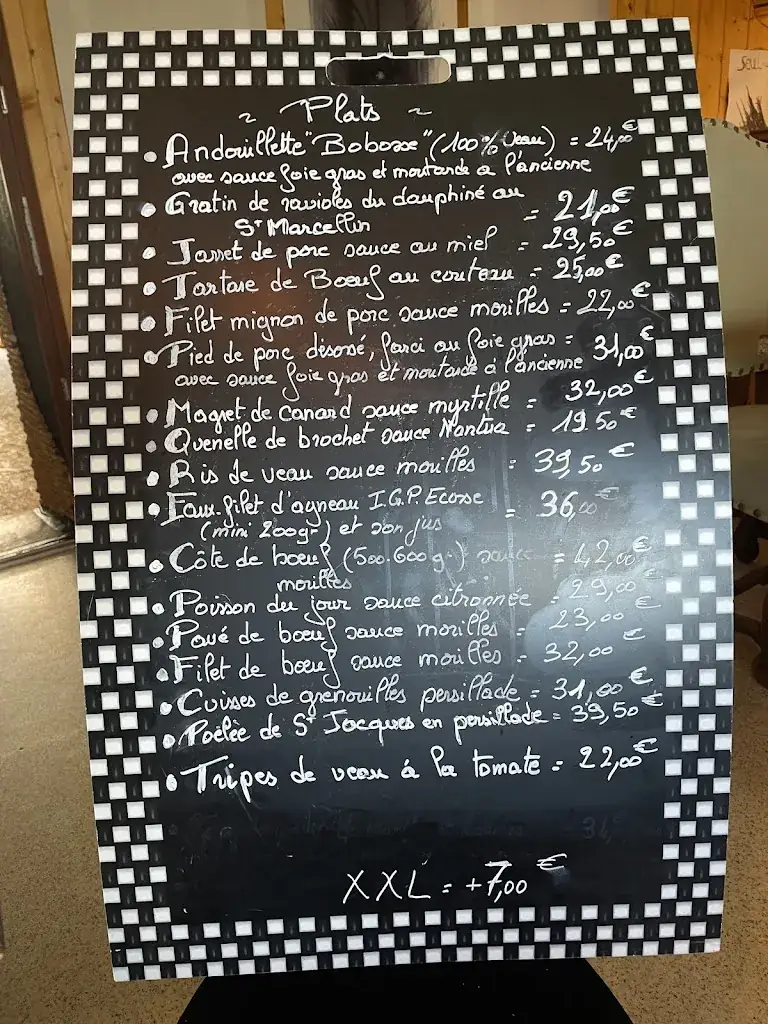 ~ Plats ~
• Andouillette "Bobosse" (100% Veau) = 24,00€
avec sauce foie gras et moutarde à l'ancienne
• Gratin de ravioles du dauphiné au
St Marcellin = 21,00€
• Jarret de porc sauce au miel = 29,50€
• Tartare de Boeuf au couteau = 25,00€
• Filet mignon de porc sauce morilles = 22,00€
• Pied de porc désossé, farci au foie gras = 31,00€
avec sauce foie gras et moutarde à l'ancienne
• Magret de canard sauce myrtille = 32,00€
• Quenelle de brochet sauce Nantua = 19.50€
• Ris de veau sauce morilles = 39,50€
• Faux-filet d'agneau I.G.P. Ecosse = 36,00€
(mini 200gr) et son jus
• Côte de boeuf (500-600g-) sauce = 42,00€
morilles
• Poisson du jour sauce citronnée = 29,00€
• Pavé de boeuf sauce morilles = 23,00€
• Filet de boeuf sauce morilles = 32,00€
• Cuisses de grenouilles persillade = 31,00€
• Poêlée de St Jacques en persillade = 39,50€
• Tripes de veau á la tomate = 22,00€
XXL = +7,00€